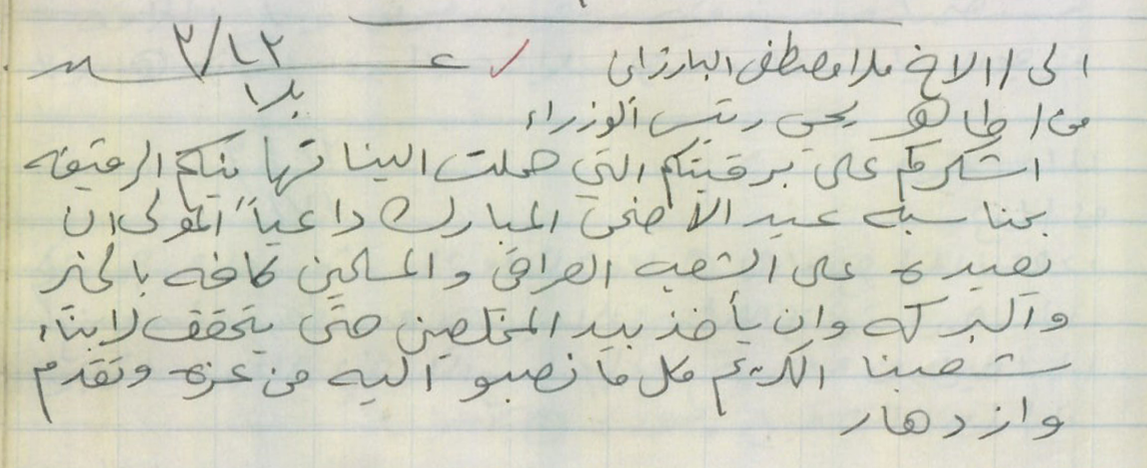 الى / الاخ ملا مصطفى البارزاني
٣/١٢
من / طاهر يحيى رئيس الوزراء
اشكركم على برقيتكم التي حملت الينا تهانيكم الرقيقه
بمناسبة عيد الأضحى المبارك داعياً المولى ان
يعيده على الشعب العراقي والمسلمين كافه بالخير
والبركه وان يأخذ بيد المخلصين حتى يتحقق لابناء
شعبنا الكريم كل ما نصبو اليه من عزه وتقدم
وازدهار